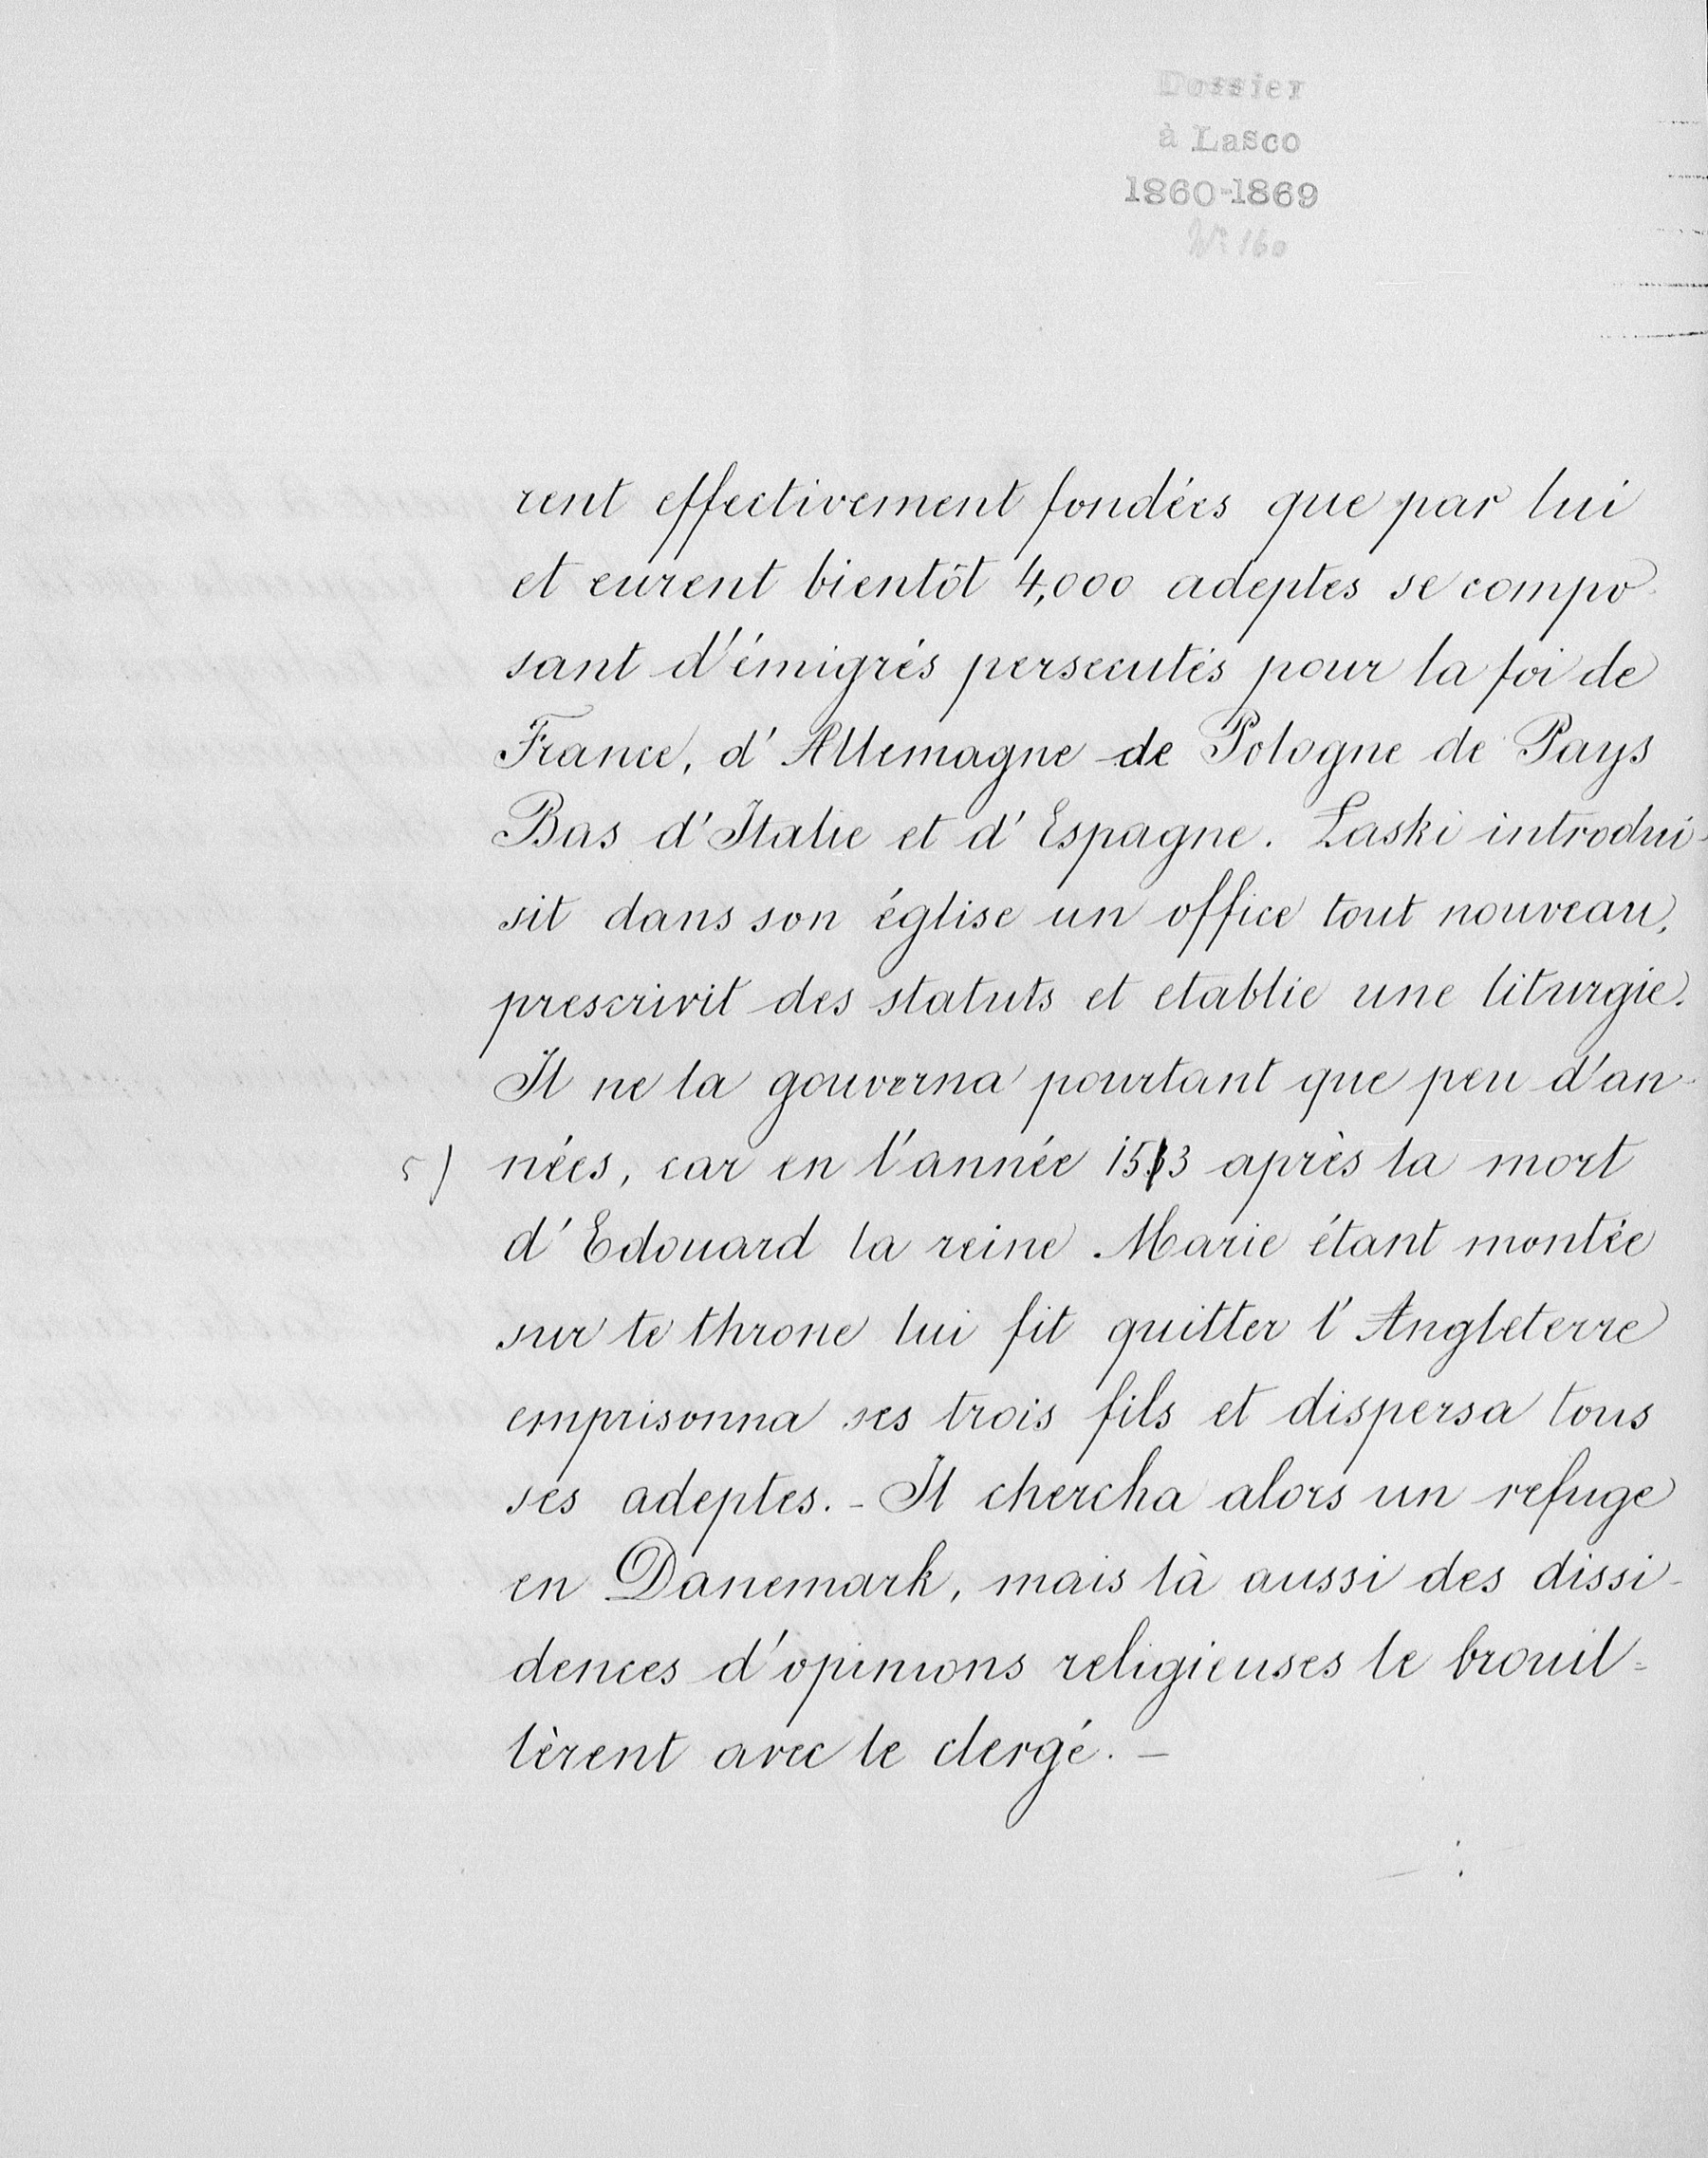 Dossier
à Lasco
1860-1869
Nº 160
rent effectivement fondées que par lui
et eurent bientôt 4,000 adeptes se compo-
sant d'émigrés persecutés pour la foi de
France, d'Allemagne de Pologne de Pays
Bas d'Italie et d'Espagne. Laski introdui-
sit dans son église un office tout nouveau,
prescrivit des statuts et etablie une liturgie.
Il ne la gouverna pourtant que peu d'an-
5) nées, car en l'année 1553 après la mort
d'Edouard la reine Marie étant montée
sur le throne lui fit quitter l'Angleterre
emprisonna ses trois fils et dispersa tous
ses adeptes. - Il chercha alors un refuge
en Danemark, mais là aussi des dissi-
dences d'opinions religieuses le brouil=
lèrent avec le clergé. -